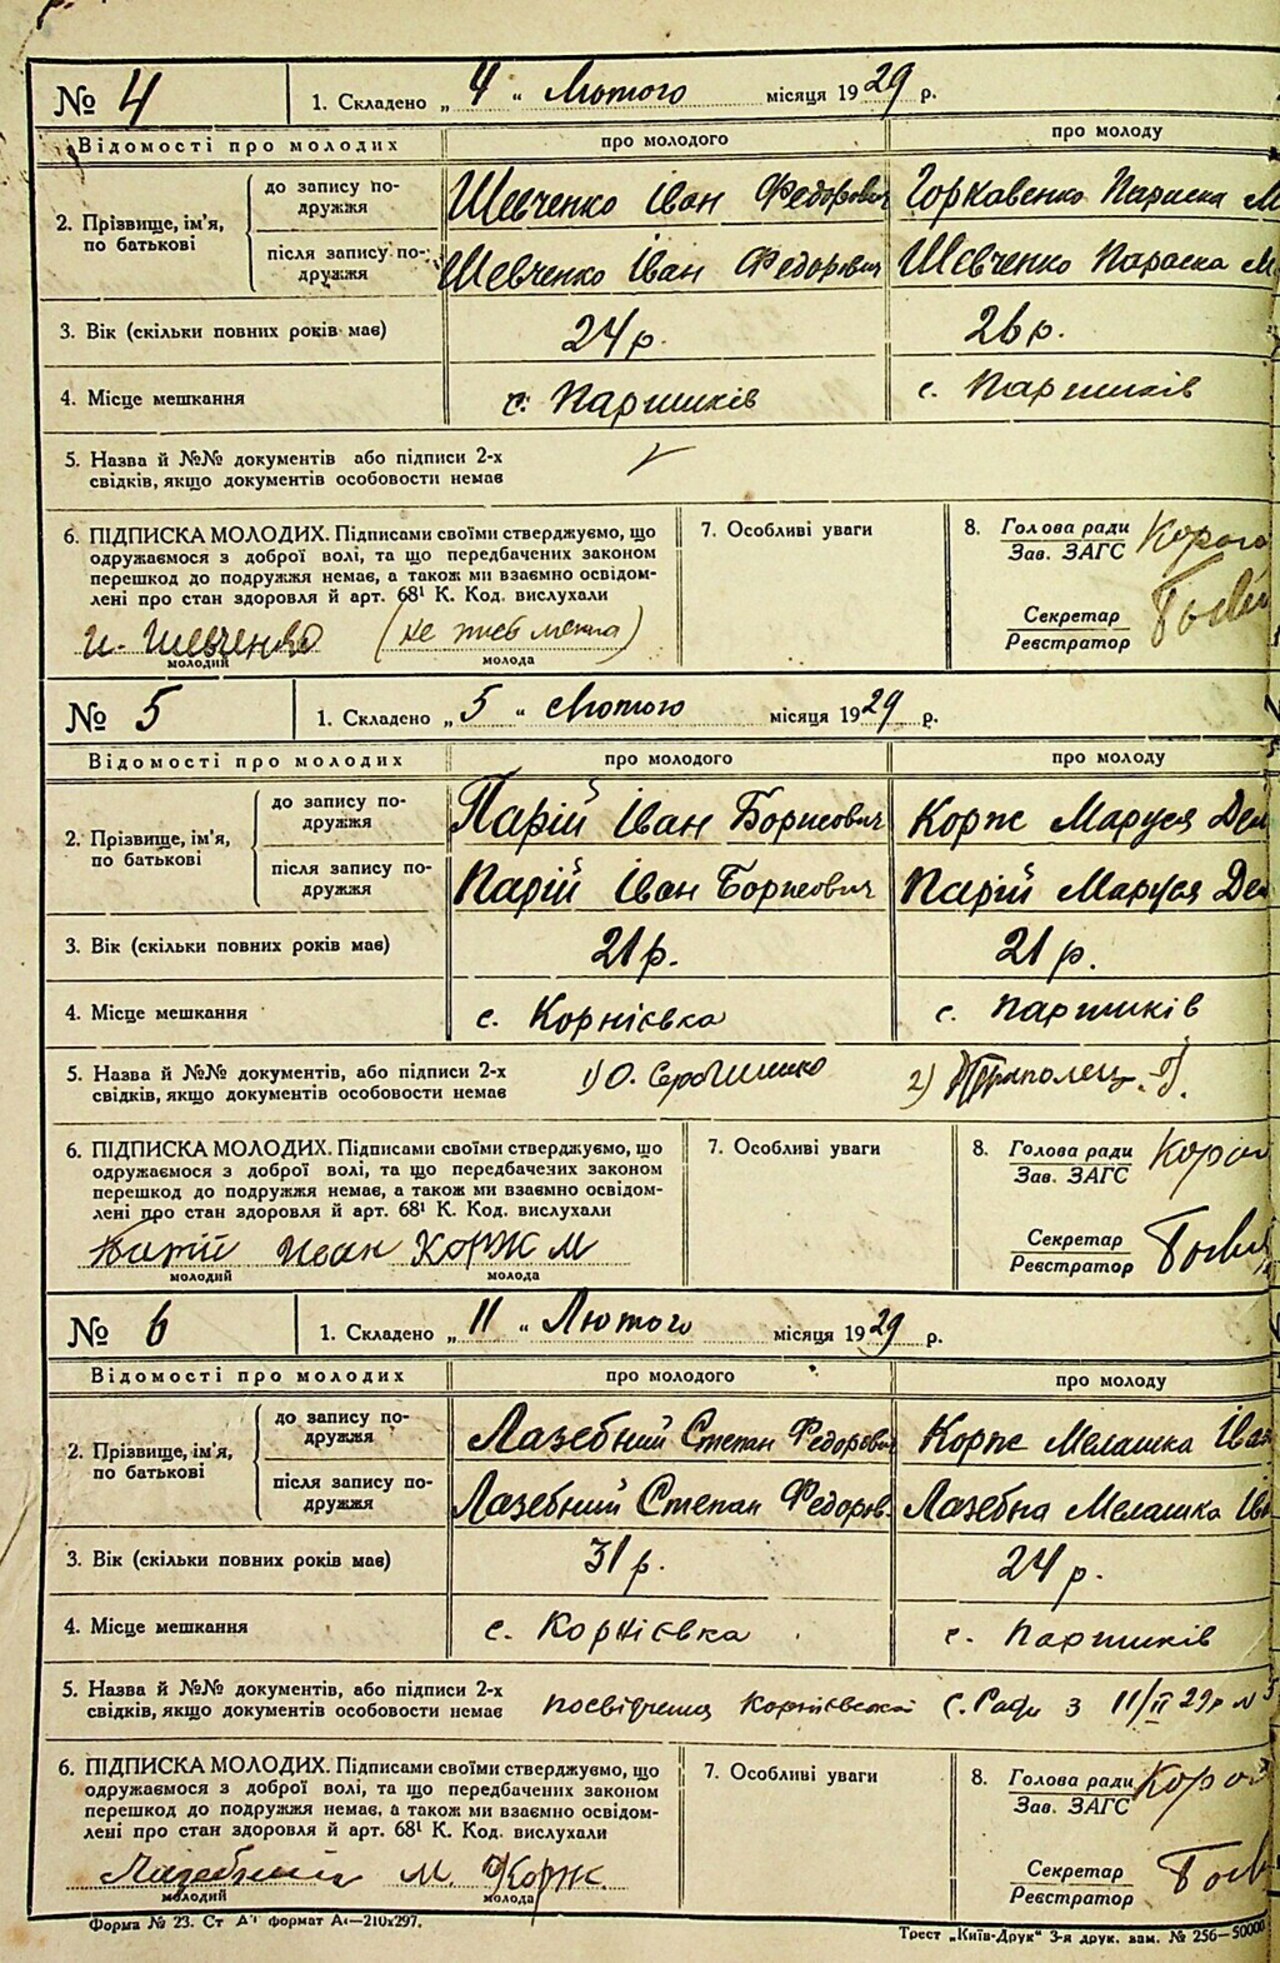 № 4
1. Складено „ 4 “ Лютого місяця 1929 р.
Відомості про молодих
про молодого
про молоду
2. Прізвище, ім'я, по батькові
до запису по-
дружжя
Шевченко Іван Федорович
Горкавенко Параска М
після запису по-
дружжя
Шевченко Іван Федорович
Шевченко Параска М
3. Вік (скільки повних років має)
24 р.
26 р.
4. Місце мешкання
с. Паришків
с. Паришків
5. Назва й №№ документів або підписи 2-х
свідків, якщо документів особовости немає
6. ПІДПИСКА МОЛОДИХ. Підписами своїми стверджуємо, що
одружаємося з доброї волі, та що передбачених законом
перешкод до подружжя немає, а також ми взаємно освідом-
лені про стан здоровля й арт. 68¹ К. Код. вислухали
И. Шевченко
молодий
молода
7. Особливі уваги
8. Голова ради
Зав. ЗАГС
Секретар
Реєстратор
№ 5
1. Складено „ 5 “ Лютого місяця 1929 р.
Відомості про молодих
про молодого
про молоду
2. Прізвище, ім'я, по батькові
до запису по-
дружжя
Парій Іван Борисович
Корж Маруся Дем
після запису по-
дружжя
Парій Іван Борисович
Парій Маруся Дем
3. Вік (скільки повних років має)
21 р.
21 р.
4. Місце мешкання
с. Корнієвка
с. Паришків
5. Назва й №№ документів, або підписи 2-х
свідків, якщо документів особовости немає
1) О.
2)
6. ПІДПИСКА МОЛОДИХ. Підписами своїми стверджуємо, що
одружаємося з доброї волі, та що передбачених законом
перешкод до подружжя немає, а також ми взаємно освідом-
лені про стан здоровля й арт. 68¹ К. Код. вислухали
Парій Иван Корж М
молодий
молода
7. Особливі уваги
8. Голова ради
Зав. ЗАГС
Секретар
Реєстратор
№ 6
1. Складено „ 11 “ Лютого місяця 1929 р.
Відомості про молодих
про молодого
про молоду
2. Прізвище, ім'я, по батькові
до запису по-
дружжя
Лазебний Степан Федорович
Корж Мелашка Іван
після запису по-
дружжя
Лазебний Степан Федоров.
Лазебна Мелашка Іва
3. Вік (скільки повних років має)
31 р.
24 р.
4. Місце мешкання
с. Корнієвка
с. Паришків
5. Назва й №№ документів, або підписи 2-х
свідків, якщо документів особовости немає
посвідчення Корнієвської С. Ради з 11/II 29 р №
6. ПІДПИСКА МОЛОДИХ. Підписами своїми стверджуємо, що
одружаємося з доброї волі, та що передбачених законом
перешкод до подружжя немає, а також ми взаємно освідом-
лені про стан здоровля й арт. 68¹ К. Код. вислухали
Лазебний М. Корж.
молодий
молода
7. Особливі уваги
8. Голова ради
Зав. ЗАГС
Секретар
Реєстратор
Форма № 23. Ст формат А₄—210х297.
Трест „Київ-Друк“ 3-я друк. зам. № 256—50000